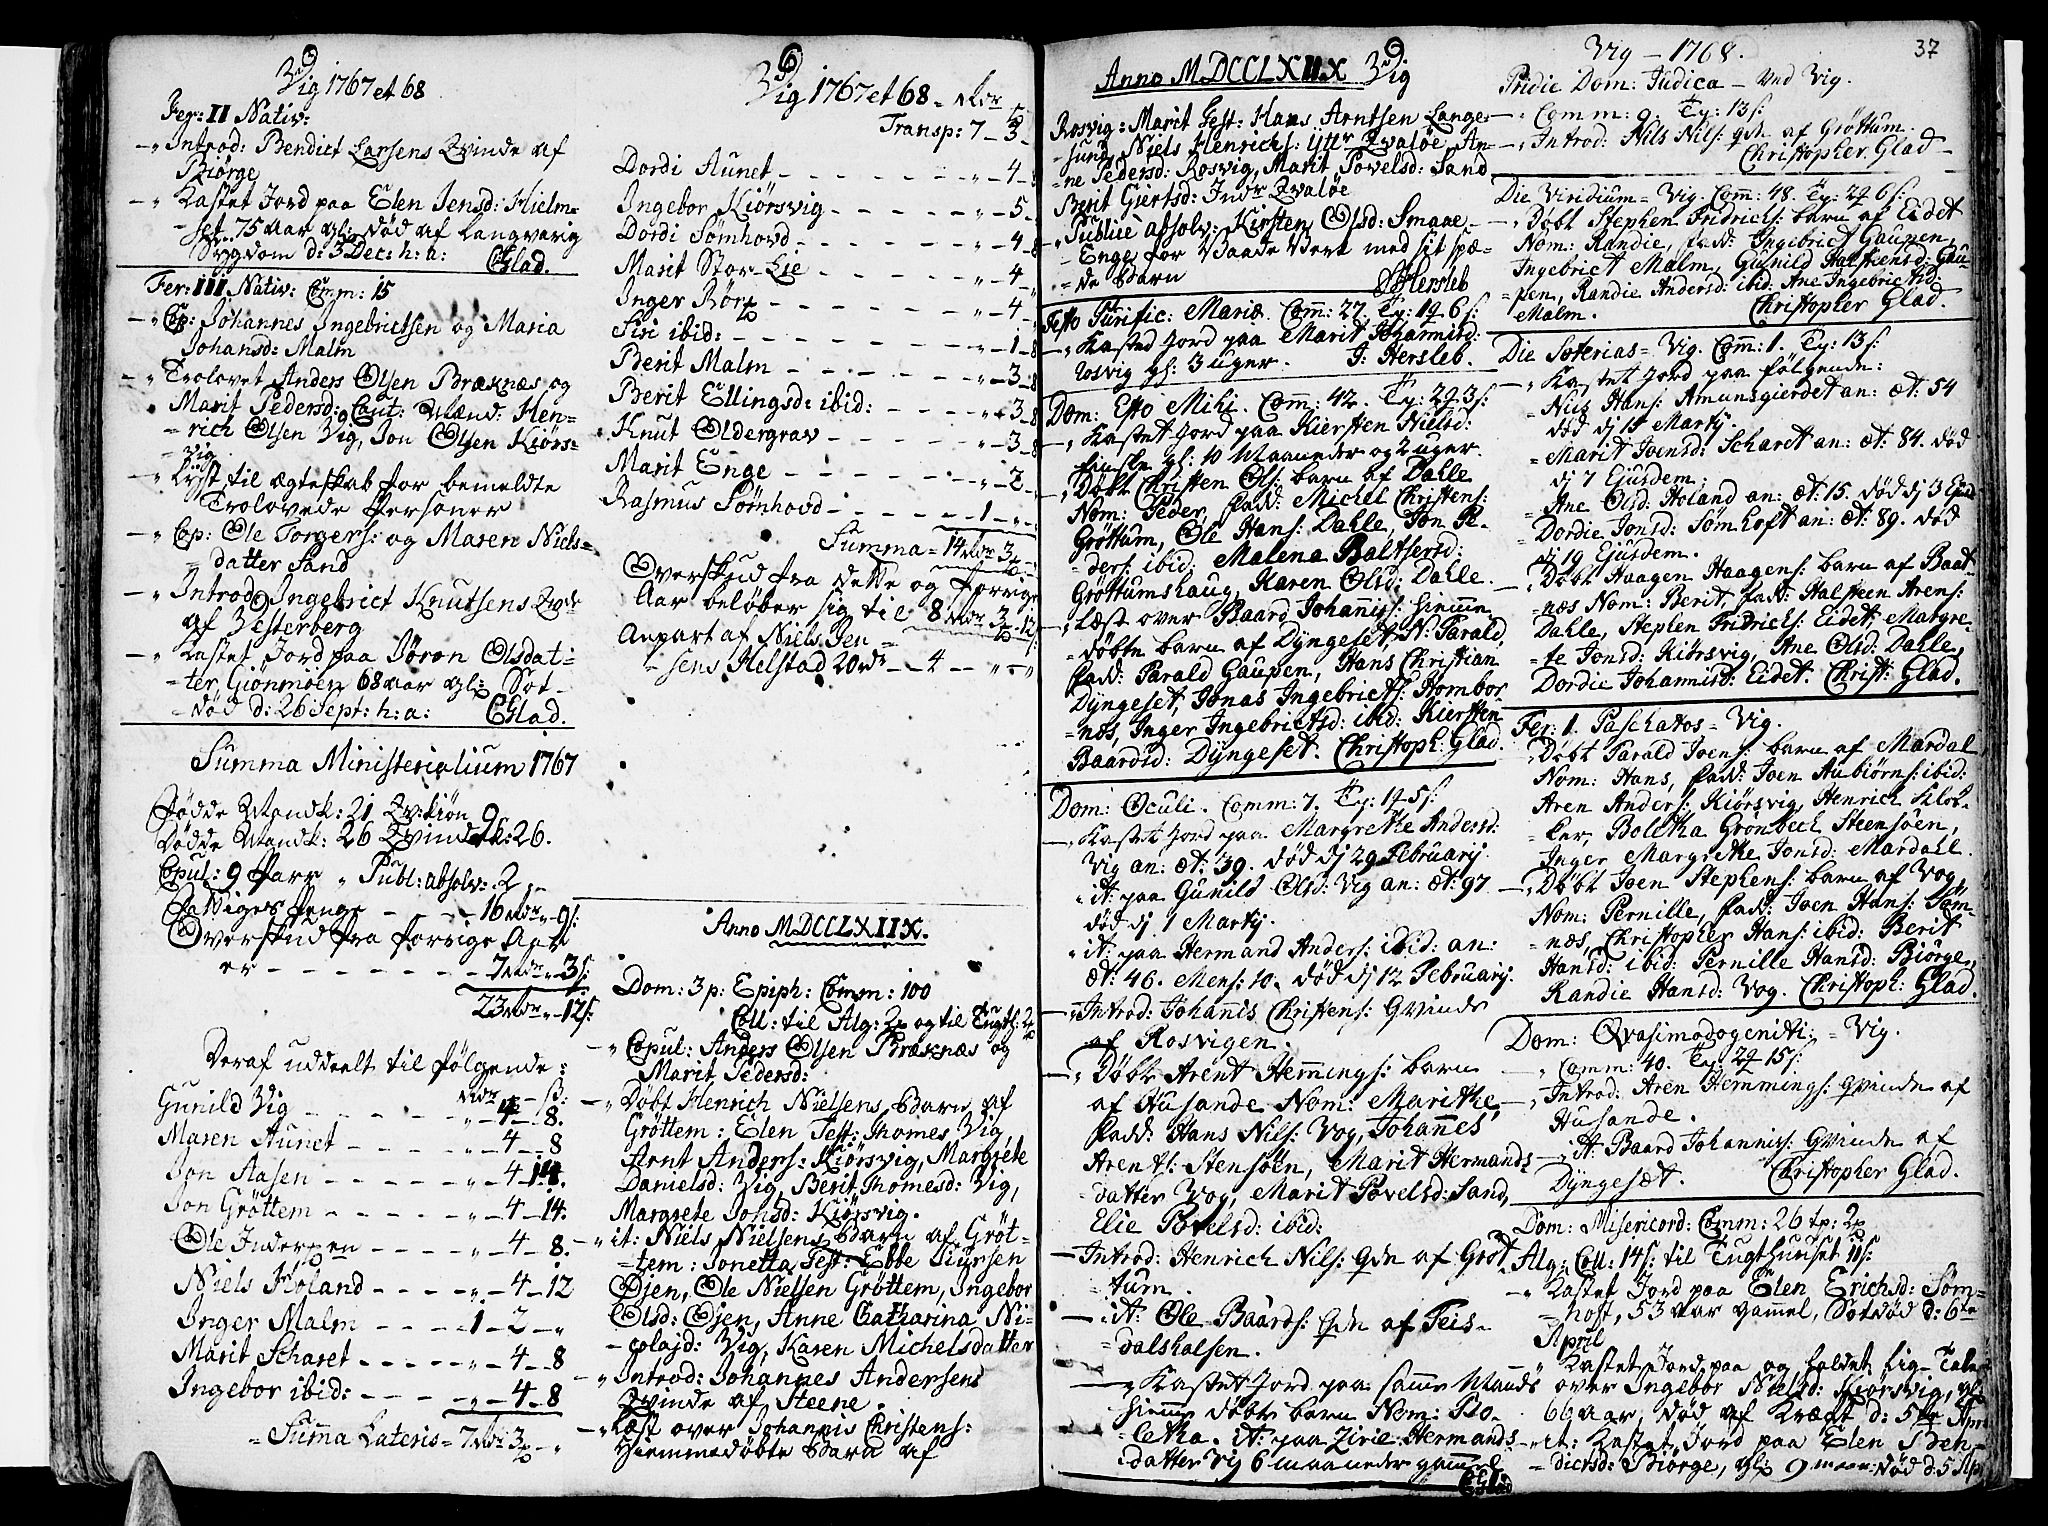 Vig 1767 et 68
Fer: II Nativ:
-„ Introd: Bendict Larsens Qvinde af
Biörge
-„ Kastet Jord paa Elen Jensd: Hielm=
-set 75 aar gl: død af langvarig
Sygdom d: 3 Dec: h: a: CGlad.
Fer: III Nativ: Comm: 15
-„ Cop: Johannes Ingebrictsen og Maria
Johansd: Malm
-„ Trolovet Anders Olsen Bræknæs og
Marit Pedersd: Caut: Hen-
=rich Olsen Vig, Jon Olsen Kiörs-
=vig
-„ Lyst til ægteskab for bemeldte
Trolovede Personer
-„ Cop: Ole Torgers: og Maren Niels=
=datter Sand
-„ Introd: Ingebrict Knutsens Qvde
af Vesterberg
-„ Kastet Jord paa Jöron Olsdat-
=ter Giönmoen 68 aar gl: Sot-
-død d: 26 Sept: h: a: CGlad.
Summa Ministerialium 1767
Fødde Mandk: 21 Qv:kiön 9
Dødde Mandk: 26 Qvindek: 26.
Copul: 9 Parr „ Publ: absolv: 2 „
Fattiges Penge - - - 16 „ 9 s:
Overskud fra forrige Aar
er - - - - - - - 7 „ 3 s:
23 „ 12 s:
Deraf uddeelt til følgende:
Gunild Vig - - - - „ - 4 - 8.
Maren Aunet - - - „ - 4 - 8
Jon Aasen - - - - - „ - 4 - 14.
Jon Gröttem - - - - „ - 4 - 14.
Ole Indergen - - - - „ - 4 - 8.
Niels Holand - - - - „ - 4 - 12
Inger Malm - - - - 1 - 2 - „
Marit Scharet - - - - „ - 4 - 8
Ingebor ibid: - - - - „ - 4 - 8
= Summa Lateris = 7 3 - „
Vig 1767 et 68
Transp: 7 - 3
Dordi Aunet - - - - - - - „ - 4 -
Ingebor Kiörsvig - - - - - - „ - 5 -
Dordi Sömhovd - - - - - - „ - 4 - 8
Marit Stor Lie - - - - - - „ - 4 -
Inger Rör - - - - - - - „ - 4 -
Siri ibid: - - - - - - - - „ - 1 - 8
Berit Malm - - - - - - „ - 3 - 8
Berit Ellingsd: ibid: - - - - „ - 3 - 8
Knut Oldergrav - - - - - „ - 3 - 8
Marit Enge - - - - - - „ - 2 -
Rasmus Sömhovd - - - - - 1 - „ -
Summa = 14 3
Overskud fra dette og forrige
Aar beløber sig til 8 3 - 12
Anpart af Niels Jen-
=sens Helstad 20 - 4 - „ - „
Anno MDCCLXIIX.
Dom: 3 p: Epiph: Comm: 100
Coll: til Alg: 2 og til Tugth: 2
-„ Copul: Anders Olsen Bræknæs og
Marit Pedersd:
-„ Døbt Henrich Nielsens Barn af
Gröttem: Elen Test: Thomes Vig,
Arnt Anders: Kiörsvig, Margrete
Danielsd: Vig, Berit Thomesd: Vig,
Margrete Johsd: Kiörsvig.
-„ it: Niels Nielsens Barn af Gröt-
=tem: Jonetta Test: Ebbe Siursen
Øien, Ole Nielsen Gröttem, Ingebor
Olsd: Øien, Anne Catharina Ni-
-colajd: Vig, Karen Michelsdatter
-„ Introd: Johannes Andersens
Qvinde af Steene.
-„ Læst over Johannis Christens:
Hiemmedøbte Barn af
Anno MDCCLXIIX Vig
Rosvig: Marit Test: Hans Arntsen Lange-
-sund, Niels Henrichs: yttr Qvaløe, An-
=ne Pedersd: Rosvig, Marit Povelsd: Sand
Berit Giertsd: Indr Qvaløe
-„ Publice absolv: Kirsten Olsd: Smaae-
-Enge for Baade Vere med sit spæ-
=de Barn JHersleb
Festo Purific: Mariæ. Comm: 27. Tr: 1 6 s:
-„ Kasted Jord paa Marit Johannisd:
Rosvig gl: 3 uger. J: Hersleb.
Dom: Esto Mihi. Comm: 42. 2 3 s:
-„ Kastet Jord paa Kiersten Nielsd:
gl: 10 Maaneder og 2 uger
-„ Døbt Christen Ols: barn af Dahle
Nom: Peder, fadd: Michel Christens:
Gröttum, Ole Hans: Dahle, Jon Pe-
=ders: ibid: Malena Baltsersd:
Gröttumshaug, Karen Olsd: Dahle.
-„ Læst over Baard Johanniss: hiemme
=døbte barn af Dyngeset, N: Parald,
fadd: Parald Gaupen, Hans Christian
Dyngeset, Jonas Ingebricts: Hombor
=næs, Inger Ingebrictsd: ibid: Kiersten
Baardsd: Dyngeset. Christoph: Glad.
Dom: Oculi. Comm: 7. 1 5 s:
-„ Kastet Jord paa Margrethe Andersd:
Vig an: æt: 39. død dj 29 Februarij.
„ it: paa Gunild Olsd: Vig an: æt: 97
død dj 1 Martij.
„ it: paa Hermand Anders: ibid: an:
æt: 46. Mens: 10. død dj 12 Februarij.
-„ Introd: Johanis Christens: Qvinde
af Rosvigen.
-„ Døbt Arent Hemings: barn
af Husande Nom: Marithe,
fadd: Hans Nils: Vog, Johannes
Arents: Stensöen, Marit Hermands
=datter Vog, Marit Povelsd: Sand,
Elie Povelsd: ibid:
-Introd: Henrich Nils: Qdn af Gröt
=tum.
- it: Ole Baards: Qdn af Teis-
=dalshalsen.
-„ Kastet Jord paa samme Mands
hiemme døbte barn Nom: Bo-
=letha. it: paa Zirie Hermands
=datter Vig 6 maaneder gammel
Vig - 1768. 37
Pridie Dom: Judica - Ved Vig.
-„ Comm: 9. Tr: 13 s:
-„ Introd: Nils Nils: qdn af Gröttum.
Christopher Glad
Die Viridium = Vig. Comm: 48. 2 6 s:
-„ Døbt Stephen Fridrichs: barn af Eidet
Nom: Randie, fadd: Ingebrict Gaupen,
Ingebrict Malm, Gunild Halstensd: Gau-
=pen, Randie Andersd: ibid: Ane Ingebrictsd:
Malm. Christopher Glad.
Die Soterias = Vig. Comm: 1. 13 s:
-„ Kastet Jord paa følgende:
=Niels Hans: Amunsgierdet an: æt: 54
død dj 15 Martij.
=Marit Joensd: Scharet an: æt: 84. død
dj 7 Ejusdem.
=Ane Olsd: Holand an: æt: 15. død dj 3 Ejusd
=Dordie Jonsd: Sömhoft an: æt: 89. død
dj 19 Ejusdem.
-„ Døbt Haagen Haagens: barn af Baat
=næs Nom: Berit, fadd: Halsteen Arens:
Dahle, Stephen Fritrichs: Eidet, Margre-
=te Jonsd: Kiörsvig, Ane Olsd: Dahle,
Dordie Johannisd: Eidet. Christ: Glad.
Fer: 1. Paschatos = Vig.
-„ Døbt Parald Joens: barn af Mardal
Nom: Hans, fadd: Joen Aubiörns: ibid:
Aren Anders: Kiörsvig, Henrich Klok-
=ker, Boletha Grönbech Steensöen,
Inger Margrethe Jonsd: Mardahl.
-„ Døbt Joen Stephens: barn af Vog,
Nom: Pernille, fadd: Joen Hans: Söm-
=næs, Christopher Hans: ibid: Berit
Hansd: ibid: Pernille Hansd: Biörge,
Randie Hansd: Vog. Christoph: Glad.
Dom: Qvasimodogeniti = Vig.
-„ Comm: 40. 2 15 s:
-„ Introd: Aren Hemmings: qvinde af
Husande.
-„ it: Baard Johannis: qvinde af
Dyngesæt. Christopher Glad.
Dom: Misericord: Comm: 26 tp: 2
Alg: Coll: 14 s: til Tugthuuset 11 s:
-„ Kastet Jord paa Elen Erichsd: Söm-
=hoft, 53 aar gammel, Sotdød d: 6te
April
-„ Kastet Jord paa og holdet Lig-Tale
over Ingebor Nielsd: Kiörsvig, gl:
66 aar, død af Kræft d: 5te Apr
-„ it: Kastet Jord paa Elen Ben-
=dictsd: Biörge, gl: 9 maan: død d: 5 Ap